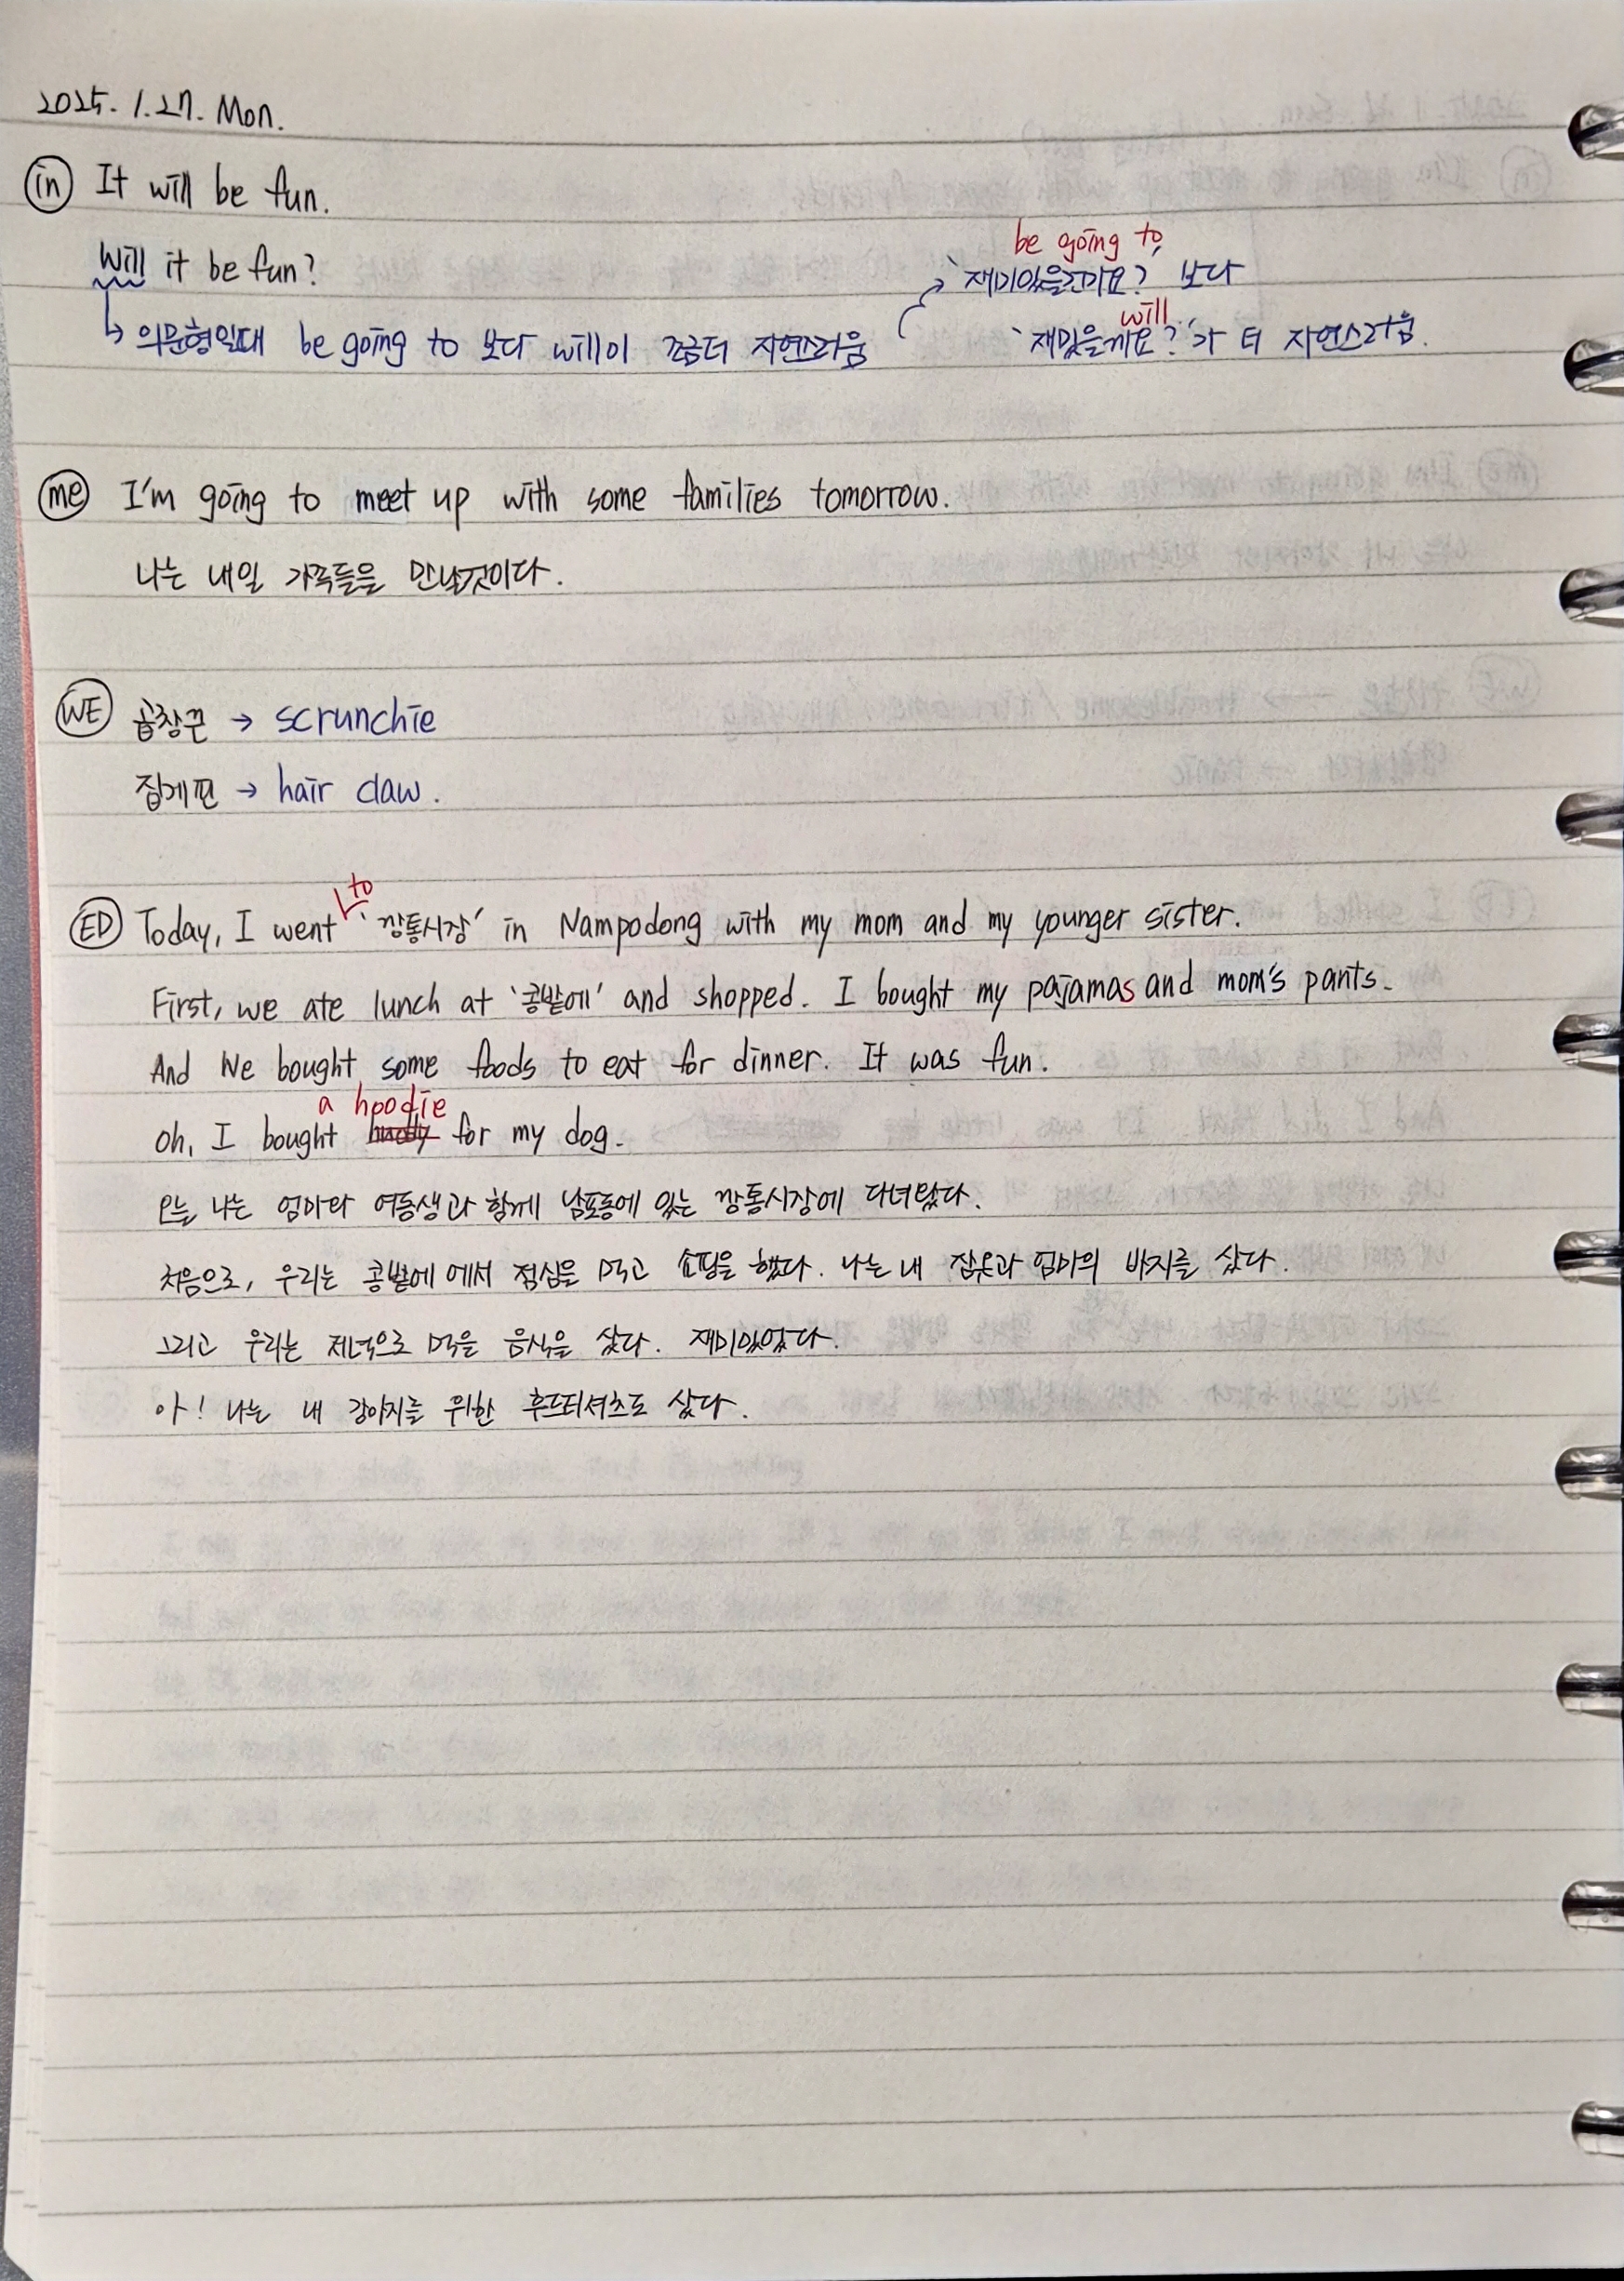 2025. 1. 27. Mon.
in It will be fun.
Will it be fun?
be going to
'재미있을건가요?' 보다
↳ 의문형일때 be going to 보다 will이 조금더 자연스러움
will
'재밌을까요?'가 더 자연스러움.
me I'm going to meet up with some families tomorrow.
나는 내일 가족들을 만날것이다.
WE 곱창끈 → scrunchie
집게핀 → hair claw.
to
ED Today, I went '깡통시장' in Nampodong with my mom and my younger sister.
First, we ate lunch at '콩밭에' and shopped. I bought my pajamas and mom's pants.
And We bought some foods to eat for dinner. It was fun.
a hoodie
Oh, I bought for my dog.
오늘 나는 엄마와 여동생과 함께 남포동에 있는 깡통시장에 다녀왔다.
처음으로, 우리는 콩밭에 에서 점심을 먹고 쇼핑을 했다. 나는 내 잠옷과 엄마의 바지를 샀다.
그리고 우리는 저녁으로 먹을 음식을 샀다. 재미있었다.
아! 나는 내 강아지를 위한 후드티셔츠도 샀다.